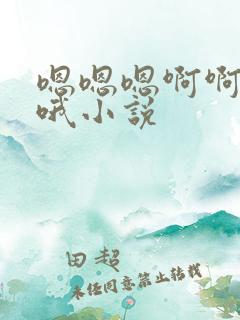 嗯嗯嗯啊啊
哦小说
田超
未经同意禁止转载